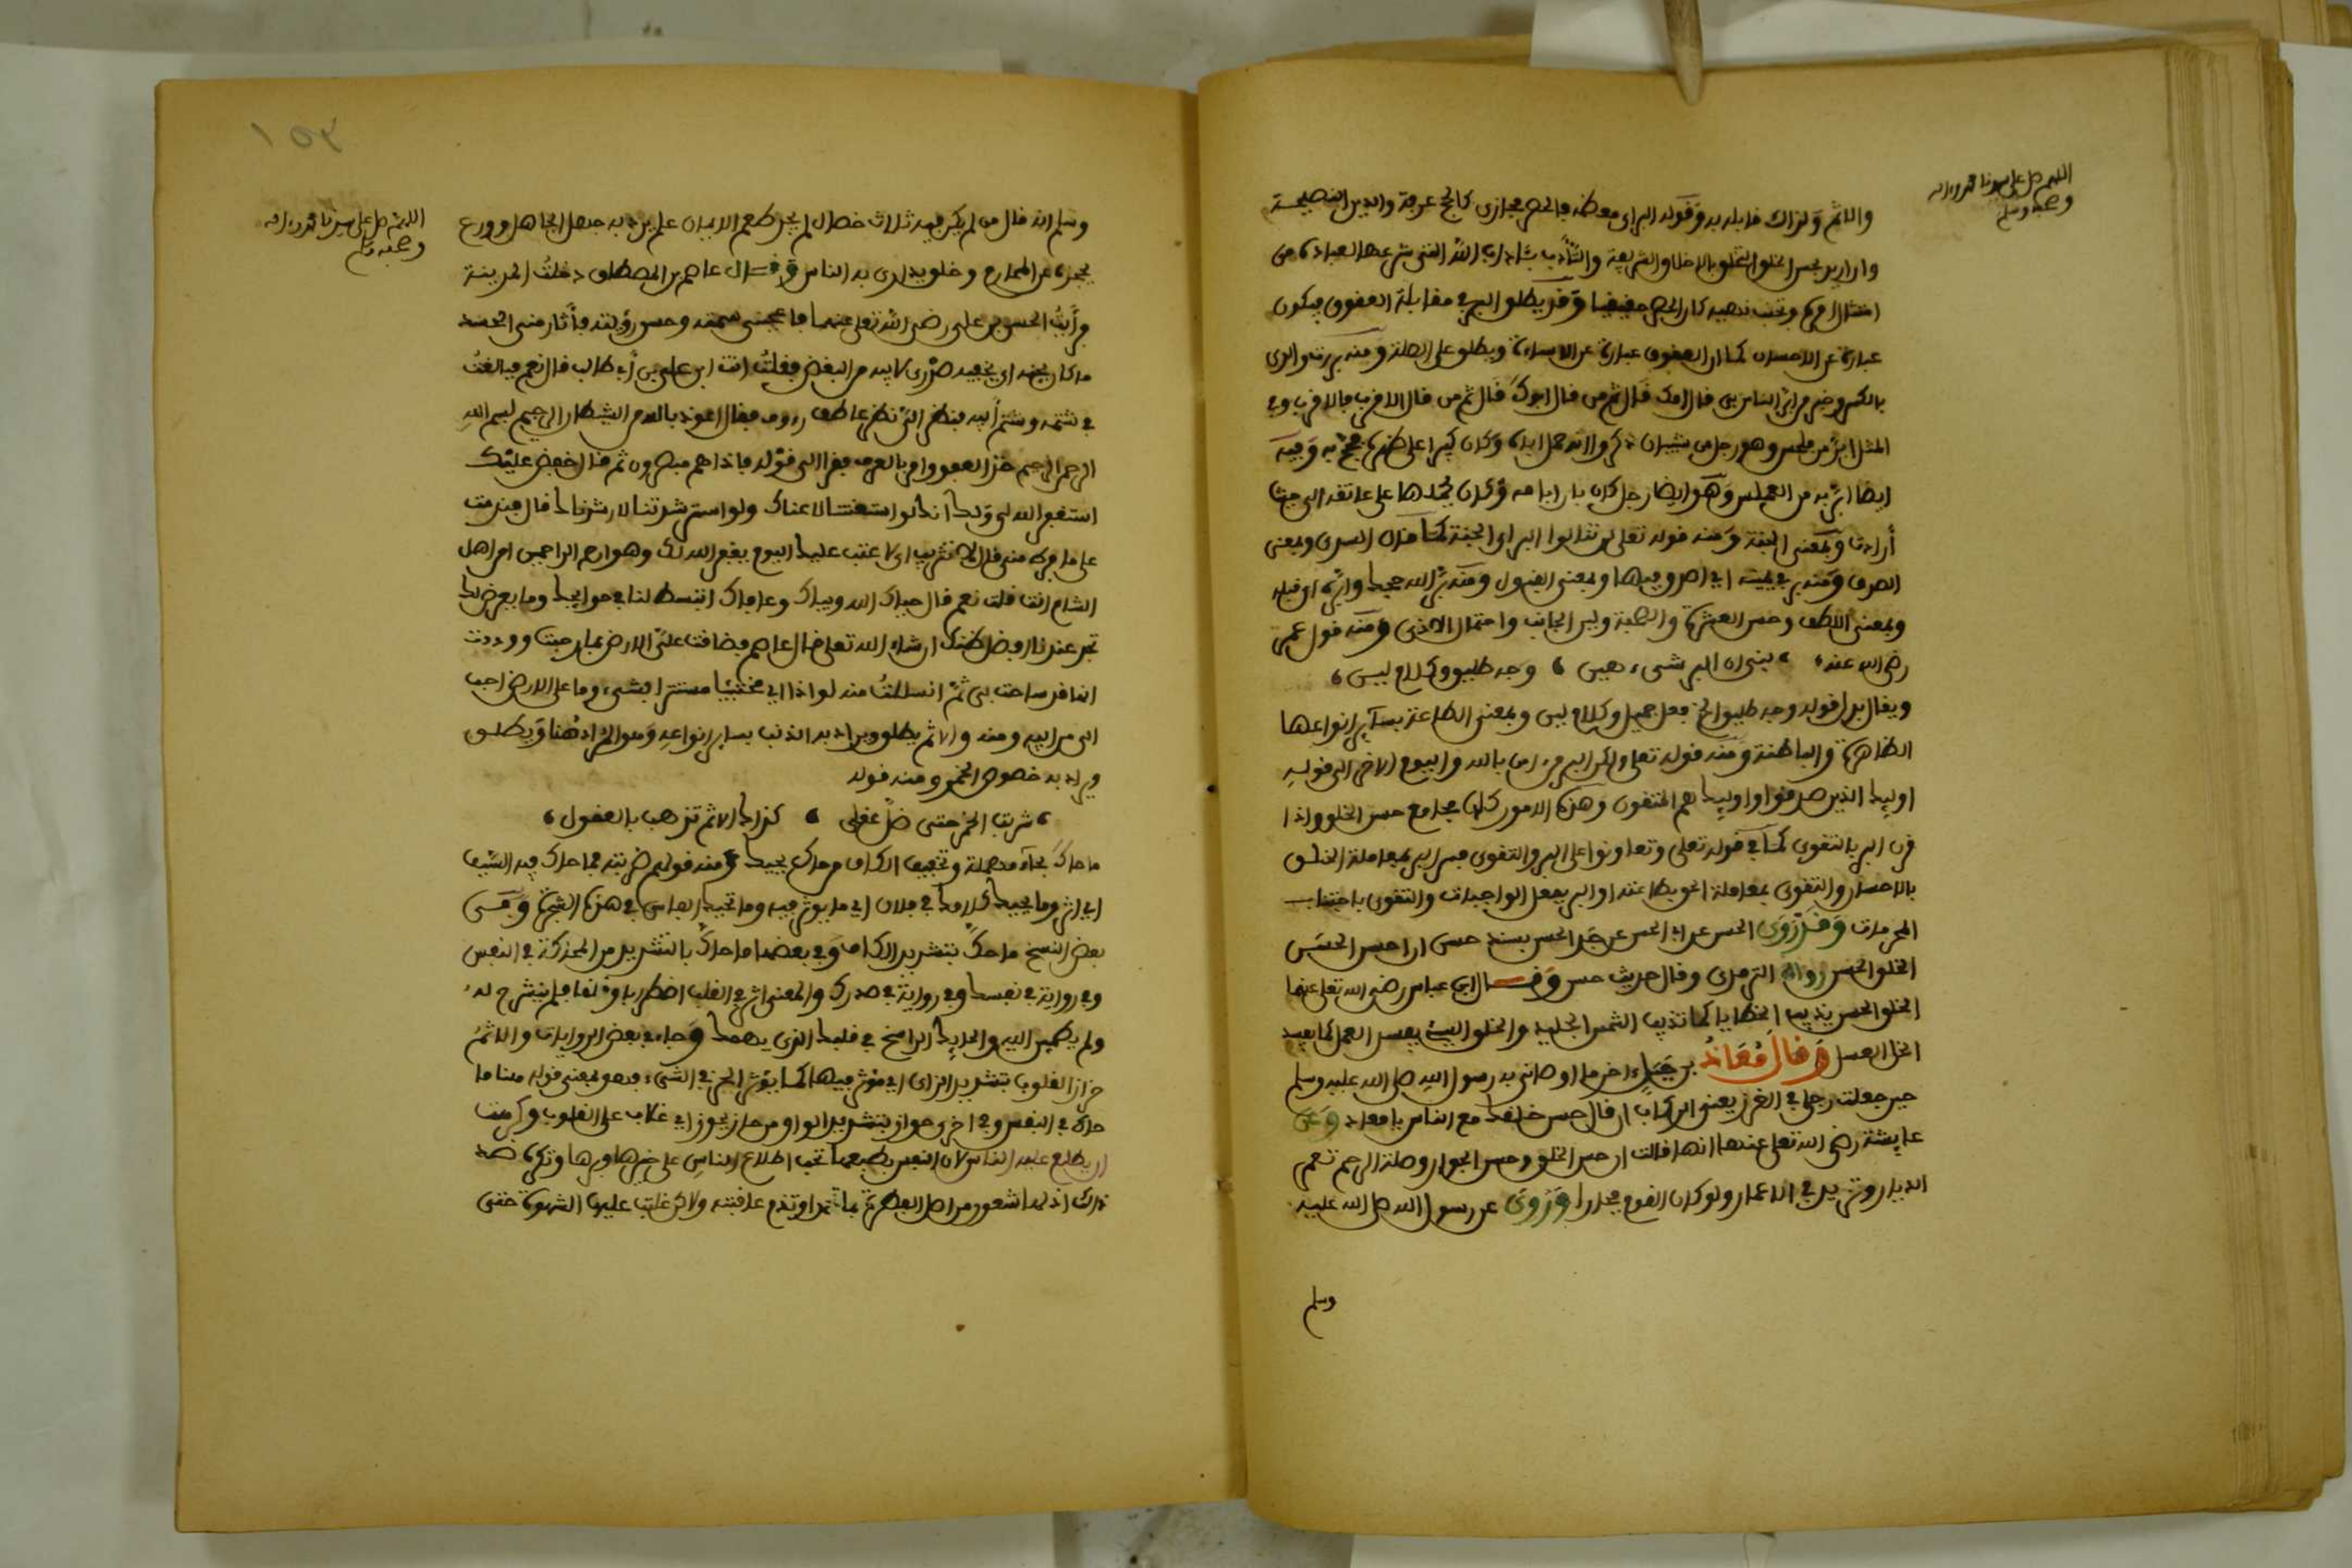 اللهم صل على سيدنا محمد وءاله
وصحبه وسلم
والاثم ولذلك قابله به وقوله البر اي معظمه فالحصر مجازي كالحج عرفة والدين النصيحة
وان اريد بحسن الخلق التخلق بالاخلاق الشريعة والتأدب بئاداب الله التي شرعها لعباده من
امتثال امره وتجنب نهيه كان الحصر حقيقيا وقد يطلق البر في مقابلة العقوق فيكون
عبارة عن الاحسان كما ان العقوق عبارة عن الاساءة ويطلق على الصلة ومنه بررت والدي
بالكسر وخبر من ابر الناس بي قال امك قال ثم من قال ابوك قال ثم من قال الاقرب فالاقرب وفي
المثل ابر من وهو رجل من شيبان ذكروا انه حمل اباه وكان كبيرا على ظهره فحج به وفيه
ايضا ابر به من العملس وهو ايضا رجل كان بارا بامه وكان يحملها على عاتقه الى حيث
أرادت وبمعنى الجنة ومنه قوله تعلى لن تنالوا البر اي الجنة كما قاله السدي وبمعنى
الصدق ومنه بر في يمينه اي صدق فيها وبمعنى القبول ومنه بر الله حجك وابره اي قبله
وبمعنى اللطف وحسن العشرة والصحبة ولين الجانب واحتمال الاذى ومنه قول عمر
رضي الله عنه ، بني ان البر شيء هين ، وجه طليق وكلام لين ،
ويقال بدل قوله وجه طليق الخ فعل جميل وكلام لين وبمعنى الطاعة بسآير انواعها
الظاهرة والباطنة ومنه قوله تعلى ولكن البر من ءامن بالله واليوم الاخر الى قوله
اوليك الذين صدقوا واوليك هم المتقون وهذه الامور كلها مجامع حسن الخلق واذا
قرن البر بالتقوى كما في قوله تعلى وتعاونوا على البر والتقوى فسر البر بمعاملة الخلق
بالاحسان والتقوى بمعاملة الحق بطاعته او البر بفعل الواجبات والتقوى باجتناب
المحرمات وقد روى الحسن عن ابي الحسن عن جد الحسن بسند حسن ان احسن الحسن
الخلق الحسن رواه الترمذي وقال حديث حسن وقال ابن عباس رضي الله تعلى عنهما
الخلق الحسن يذيب الخطايا كما تذيب الشمس الجليد والخلق السيئ يفسد العمل كما يفسد
الخل العسل وقال معاذ بن جبل ءاخر ما اوصاني به رسول الله صلى الله عليه وسلم
حين جعلت رجلي في الغرز يعني الركاب ان قال حسن خلقك مع الناس يا معاذ وعن
عايشة رضي الله تعلى عنها انها قالت ان حسن الخلق وحسن الجوار وصلة الرحم تعمر
الديار وتزيد في الاعمار ولو كان القوم فجارا وروى عن رسول الله صلى الله عليه
وسلم
اللهم صل على سيدنا محمد وءاله
وصحبه وسلم
وسلم انه قال من لم يكن فيه ثلاث خصال لم يجد طعم الايمان علم يرد به جهل الجاهل وورع
يحجزه عن المحارم وخلق يداري به الناس وقال عاصم بن المصطلق دخلت المدينة
فرأيت الحسن بن علي رضي الله تعلى عنهما فاعجبني سمته وحسن رؤيته فأثار مني الحسد
ما كان يجنه اي يخفيه صدري لابيه من البغض فقلت انت ابن علي بن أبي طالب قال نعم فبالغت
في شتمه وشتم أبيه فنظر الي نظر عاطف رءوف فقال اعوذ بالله من الشيطان الرجيم بسم الله
الرحمن الرحيم خذ العفو وامر بالعرف فقرا الى قوله فاذا هم مبصرون ثم قال اخفض عليك
استغفر الله لي ولك انك لو استعنتنا لاعناك ولو استرشدتنا لارشدناك قال فندمت
على ما فرط مني قال لا تثريب اي لا عتب عليك اليوم يغفر الله لك وهو ارحم الراحمين امن اهل
الشام انت قلت نعم قال حياك الله وبياك وعافاك انبسط لنا في حوايجك وما يعرض لك
تجد عندنا افضل ظنك ان شاء الله تعلى قال عاصم فضاقت علي الارض بما رحبت ووددت
انها قد ساخت بي ثم انسللت منه لواذا اي مختبئا مستترا بشيء وما على الارض احب
الي من ابيه ومنه والاثم يطلق ويراد به الذنب بساير انواعه وهو المراد هنا ويطلق
ويراد به خصوص الخمر ومنه قوله
، شربت الخمر حتى ضل عقلي ، كذاك الاثم تذهب بالعقول ،
ما حاك بحآء مهملة وتخفيف الكاف من حاك يحيك ومنه قولهم ضربته فما حاك فيه السيف
اي اثر وما يحيك كلامك في فلان اي ما يوثر فيه وما تحيك الفاس في هذه الشجرة وفي
بعض النسخ ما حك بتشديد الكاف وفي بعضها ما حاك بالتشديد من المحاككة في النفس
وفي رواية في نفسك وفي رواية في صدرك والمعنى اثر في القلب اضطرابا وقلقا فلم ينشرح له
ولم يطمئن اليه والحايك الراسخ في قلبك الذي يهمك وجاء في بعض الروايات والاثم
حزاز القلوب بتشديد الزاي اي يؤثر فيها كما يؤثر الحز في الشيء وهو بمعنى قوله هنا ما
حاك في النفس وفي اخرى حواز بتشديد الواو من حاز يحوز اي غلاب على القلوب وكرهت
ان يطلع عليه الناس لان النفس بطبعها تحب اطلاع الناس على خيرها وبرها وتكره ضد
ذلك اذ لها شعور من اصل الفطرة بما تحمد او تذم عاقبته ولاكن غلبت عليها الشهوة حتى